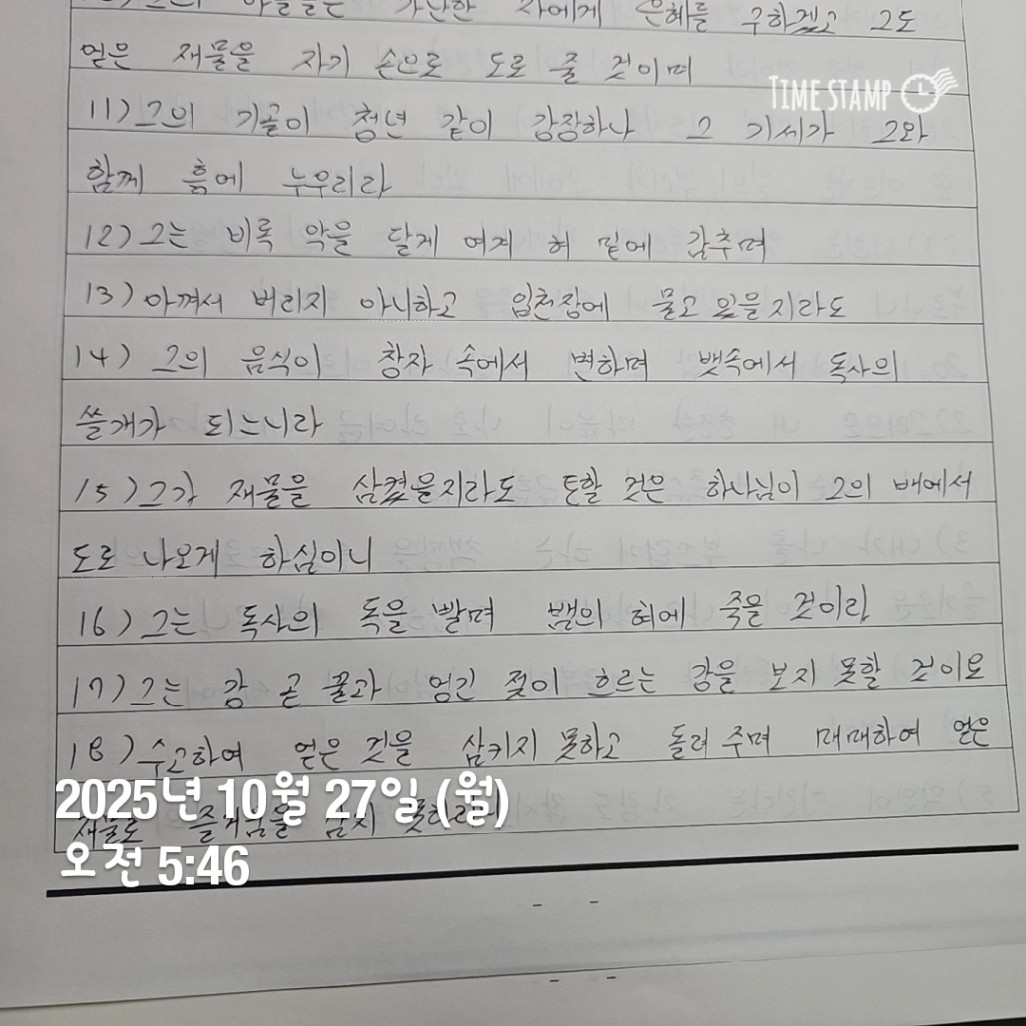 10) 그의 아들들은 가난한 자에게 은혜를 구하겠고 그도
얻은 재물을 자기 손으로 도로 줄 것이며
TIME STAMP
11) 그의 기골이 청년 같이 강장하나 그 기세가 그와
함께 흙에 누우리라
12) 그는 비록 악을 달게 여겨 혀 밑에 감추며
13) 아껴서 버리지 아니하고 입천장에 물고 있을지라도
14) 그의 음식이 창자 속에서 변하며 뱃속에서 독사의
쓸개가 되느니라
15) 그가 재물을 삼켰을지라도 토할 것은 하나님이 그의 배에서
도로 나오게 하심이니
16) 그는 독사의 독을 빨며 뱀의 혀에 죽을 것이라
17) 그는 강 곧 꿀과 엉긴 젖이 흐르는 강을 보지 못할 것이요
18) 수고하여 얻은 것을 삼키지 못하고 돌려 주며 매매하여 얻은
재물로 즐거움을 삼지 못하리니
2025년 10월 27일 (월)
오전 5:46